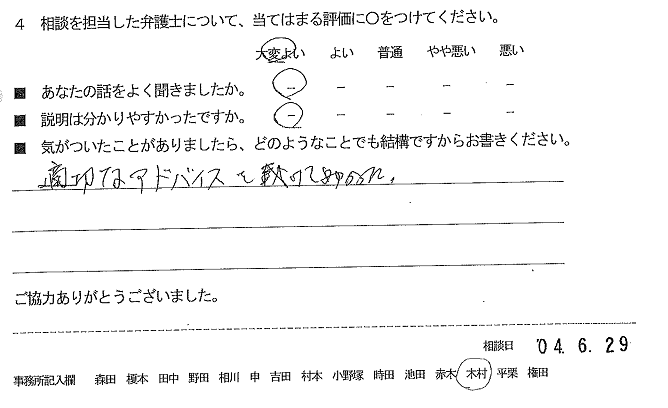 4 相談を担当した弁護士について、当てはまる評価に○をつけてください。
大変よい よい 普通 やや悪い 悪い
■ あなたの話をよく聞きましたか。 － － － － －
■ 説明は分かりやすかったですか。 － － － － －
■ 気がついたことがありましたら、どのようなことでも結構ですからお書きください。
適切なアドバイスを
ご協力ありがとうございました。
相談日 '04. 6. 29
事務所記入欄 森田 榎本 田中 野田 相川 申 吉田 村本 小野塚 時田 池田 赤木 木村 平栗 権田